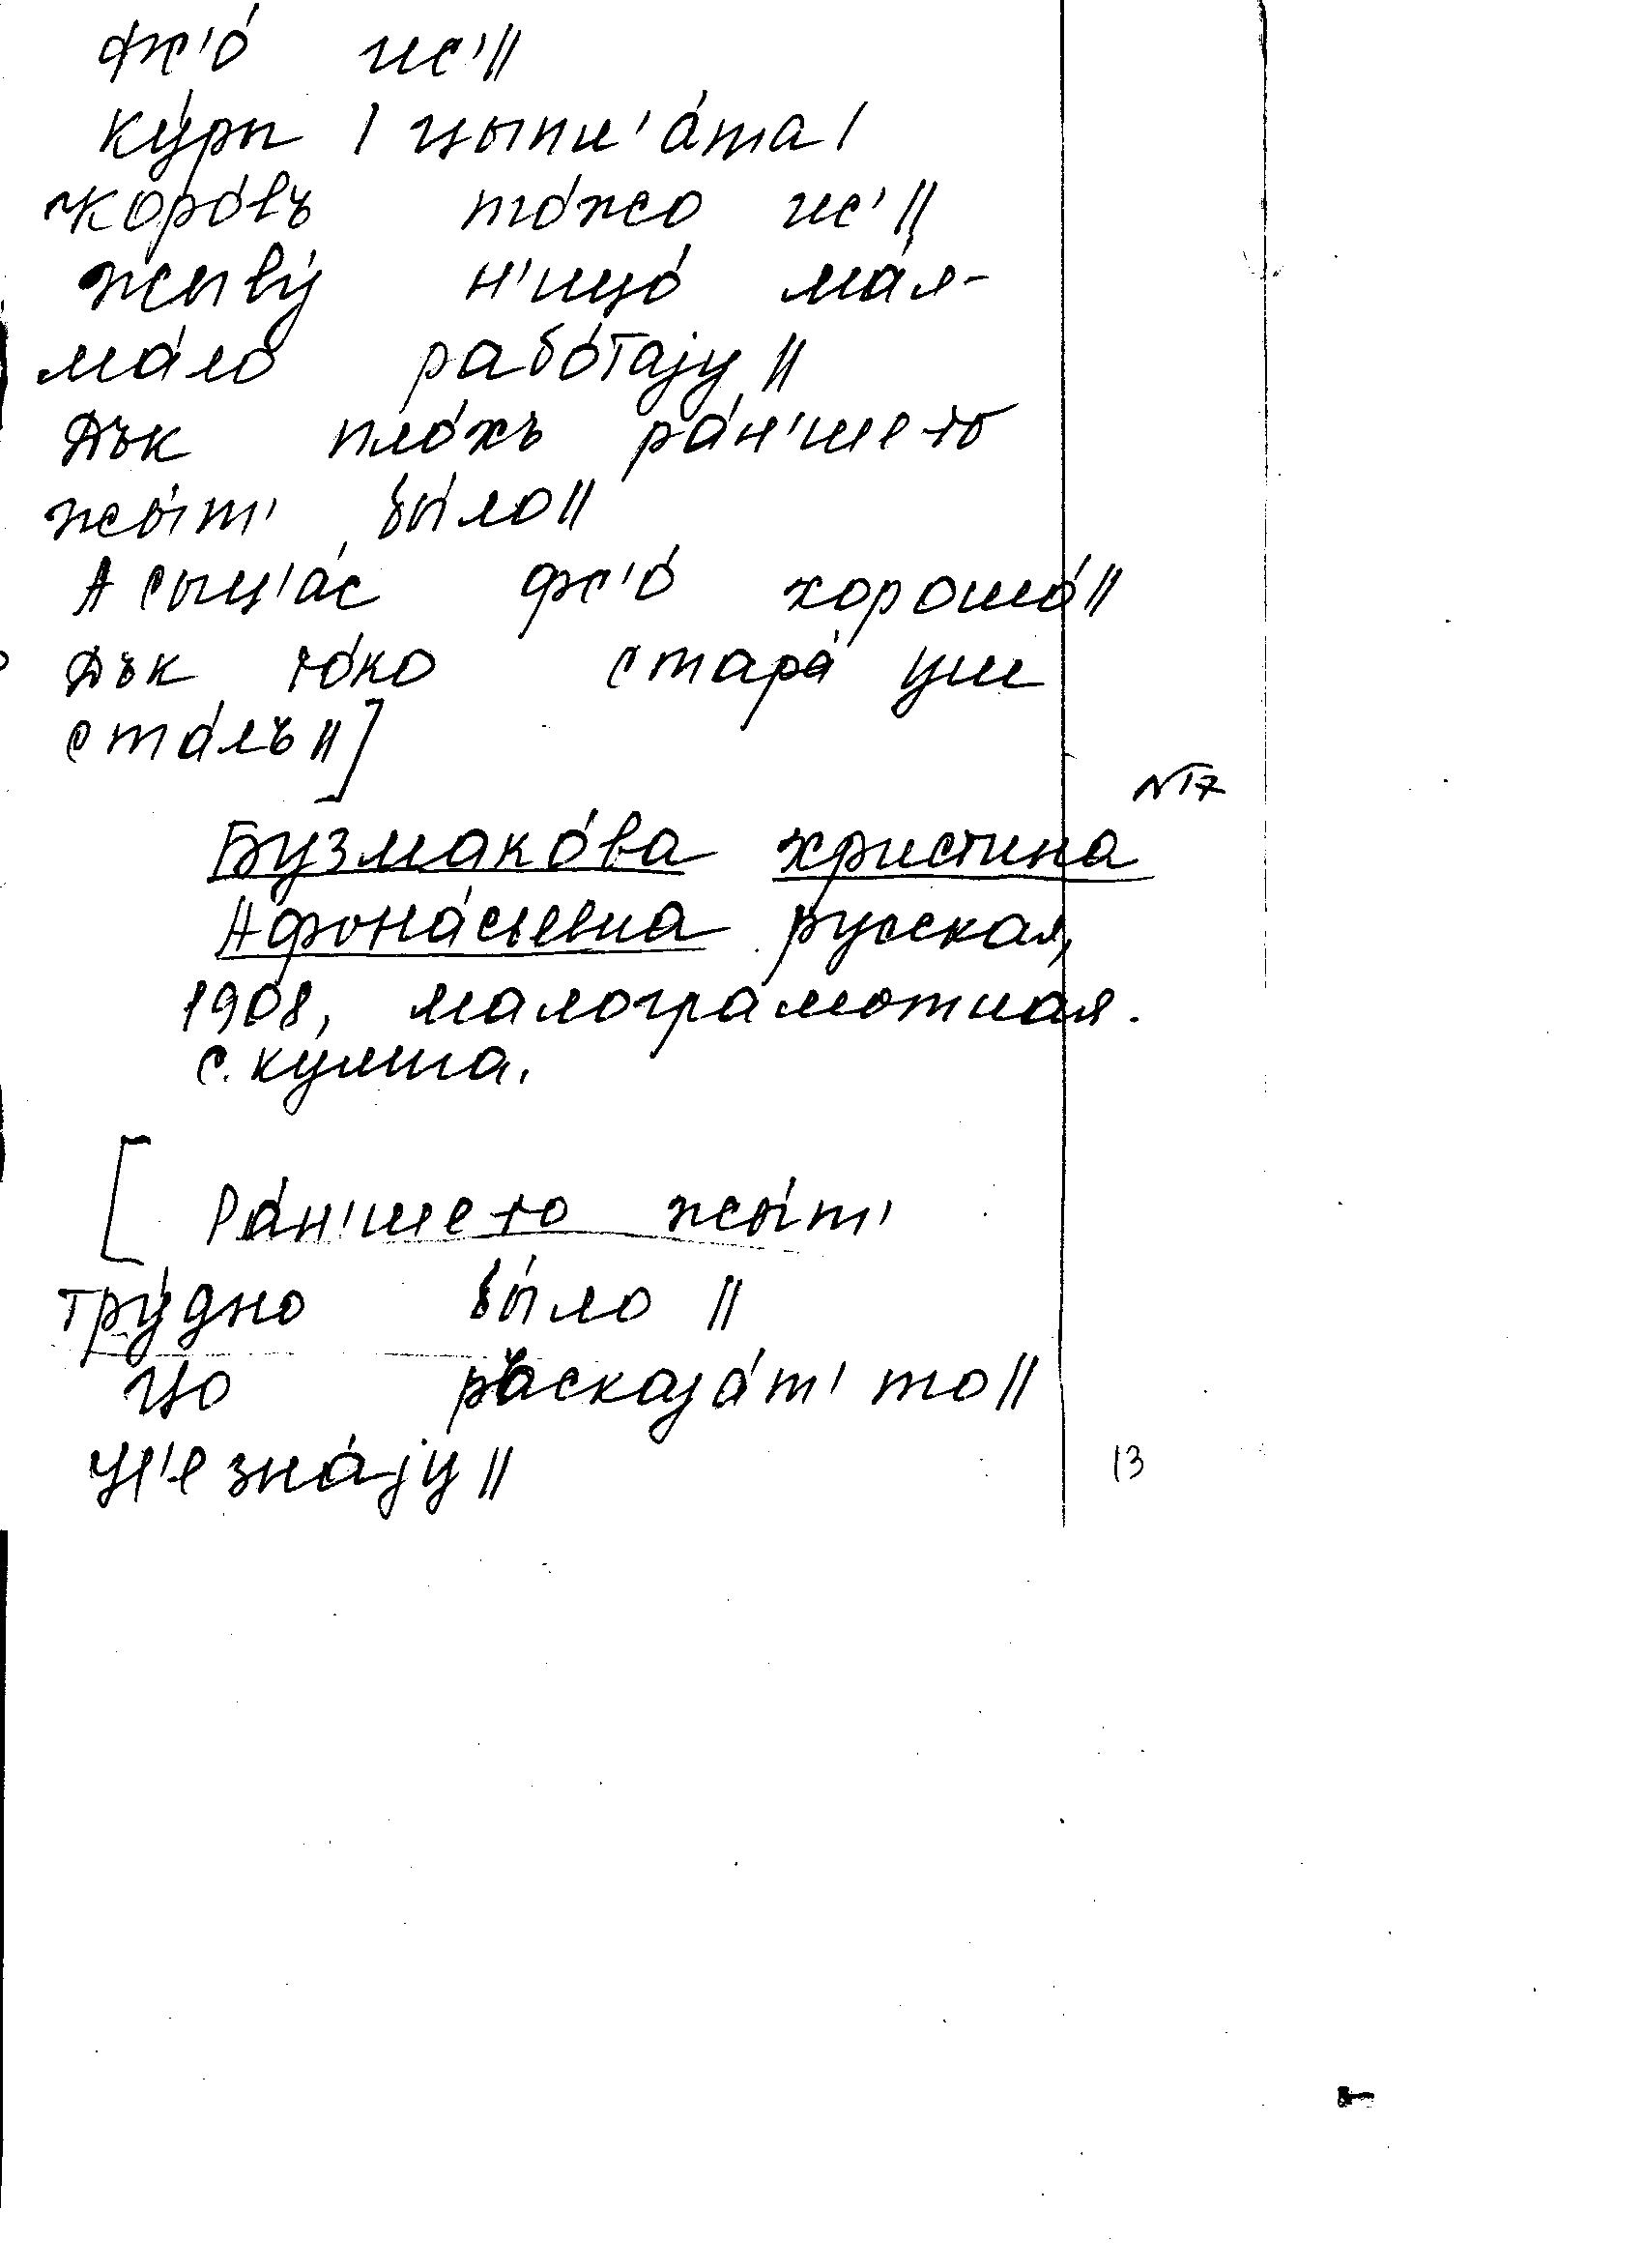 фс'о́ ис'||
ку́ры | цыпл'а́та |
коро́въ то́жо ис'||
жыву́ н'ицо́ ма́л-
ма́ло рабо́таjу ||
Дък пло́хъ ра́н'ше-то
жы́т' бы́ло ||
А сыц'а́с фс'о́ хорошо́ ||
Дък то́ко стара́ уш
ста́лъ ||]
№17
Бузмако́ва Христина
Афона́сьевна русская,
1908, малограмотная.
с. Ку́лига.
[ Ра́н'ше-то жы́т'
тру́дно бы́ло ||
Цо ръскаjа́т' то ||
Н'е зна́jу ||
13